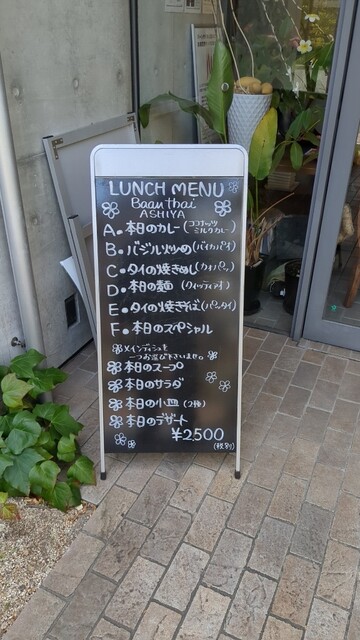 LUNCH MENU
Baan thai
ASHIYA
A. 本日のカレー(ココナッツミルクカレー)
B. バジル炒め(パイガパオ)
C. タイの焼きめし(カオパッ)
D. 本日の麺(クイッティアオ)
E. タイの焼きそば(パッタイ)
F. 本日のスペシャル
※メインディシュを
一つお選び下さいませ。
本日のスープ
本日のサラダ
本日の小皿(2種)
本日のデザート
¥2,500
(税別)